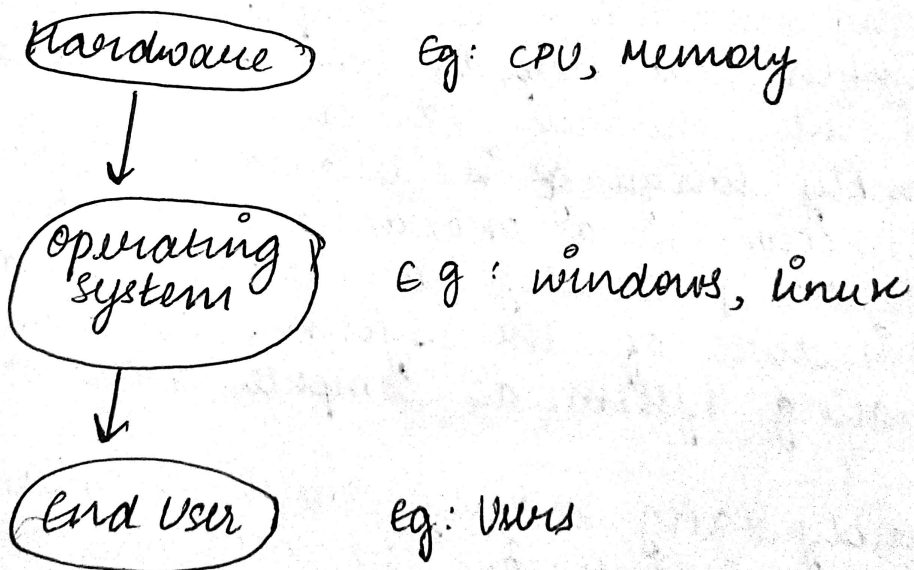 Hardware Eg: CPU, Memory
Operating
System Eg: Windows, Linux
End User Eg: Users